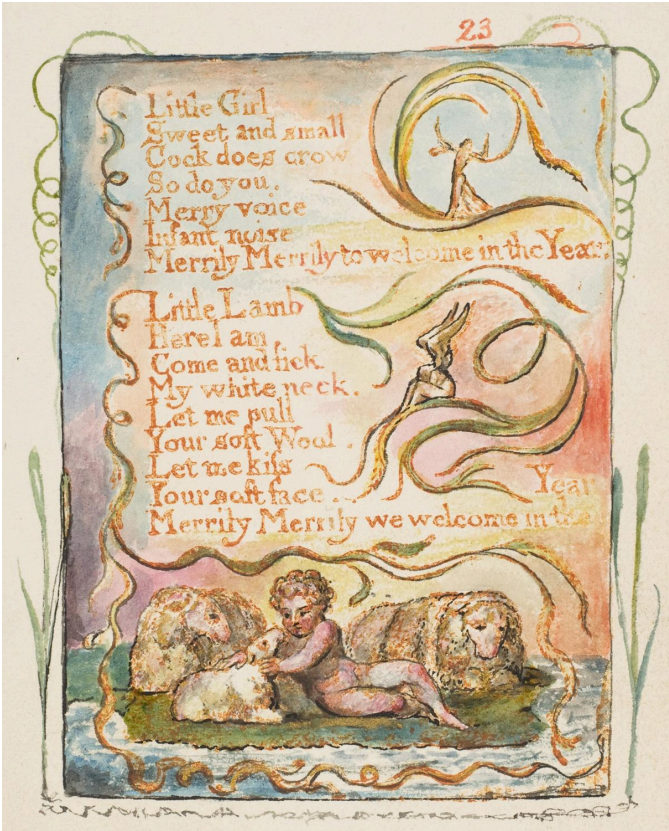 23
Little Girl
Sweet and small
Cock does crow
So do you.
Merry voice
Infant noise
Merrily Merrily to welcome in the Year
Little Lamb
Here I am,
Come and lick
My white neck.
Let me pull
Your soft Wool.
Let me kiss
Your soft face.
Year
Merrily Merrily we welcome in the